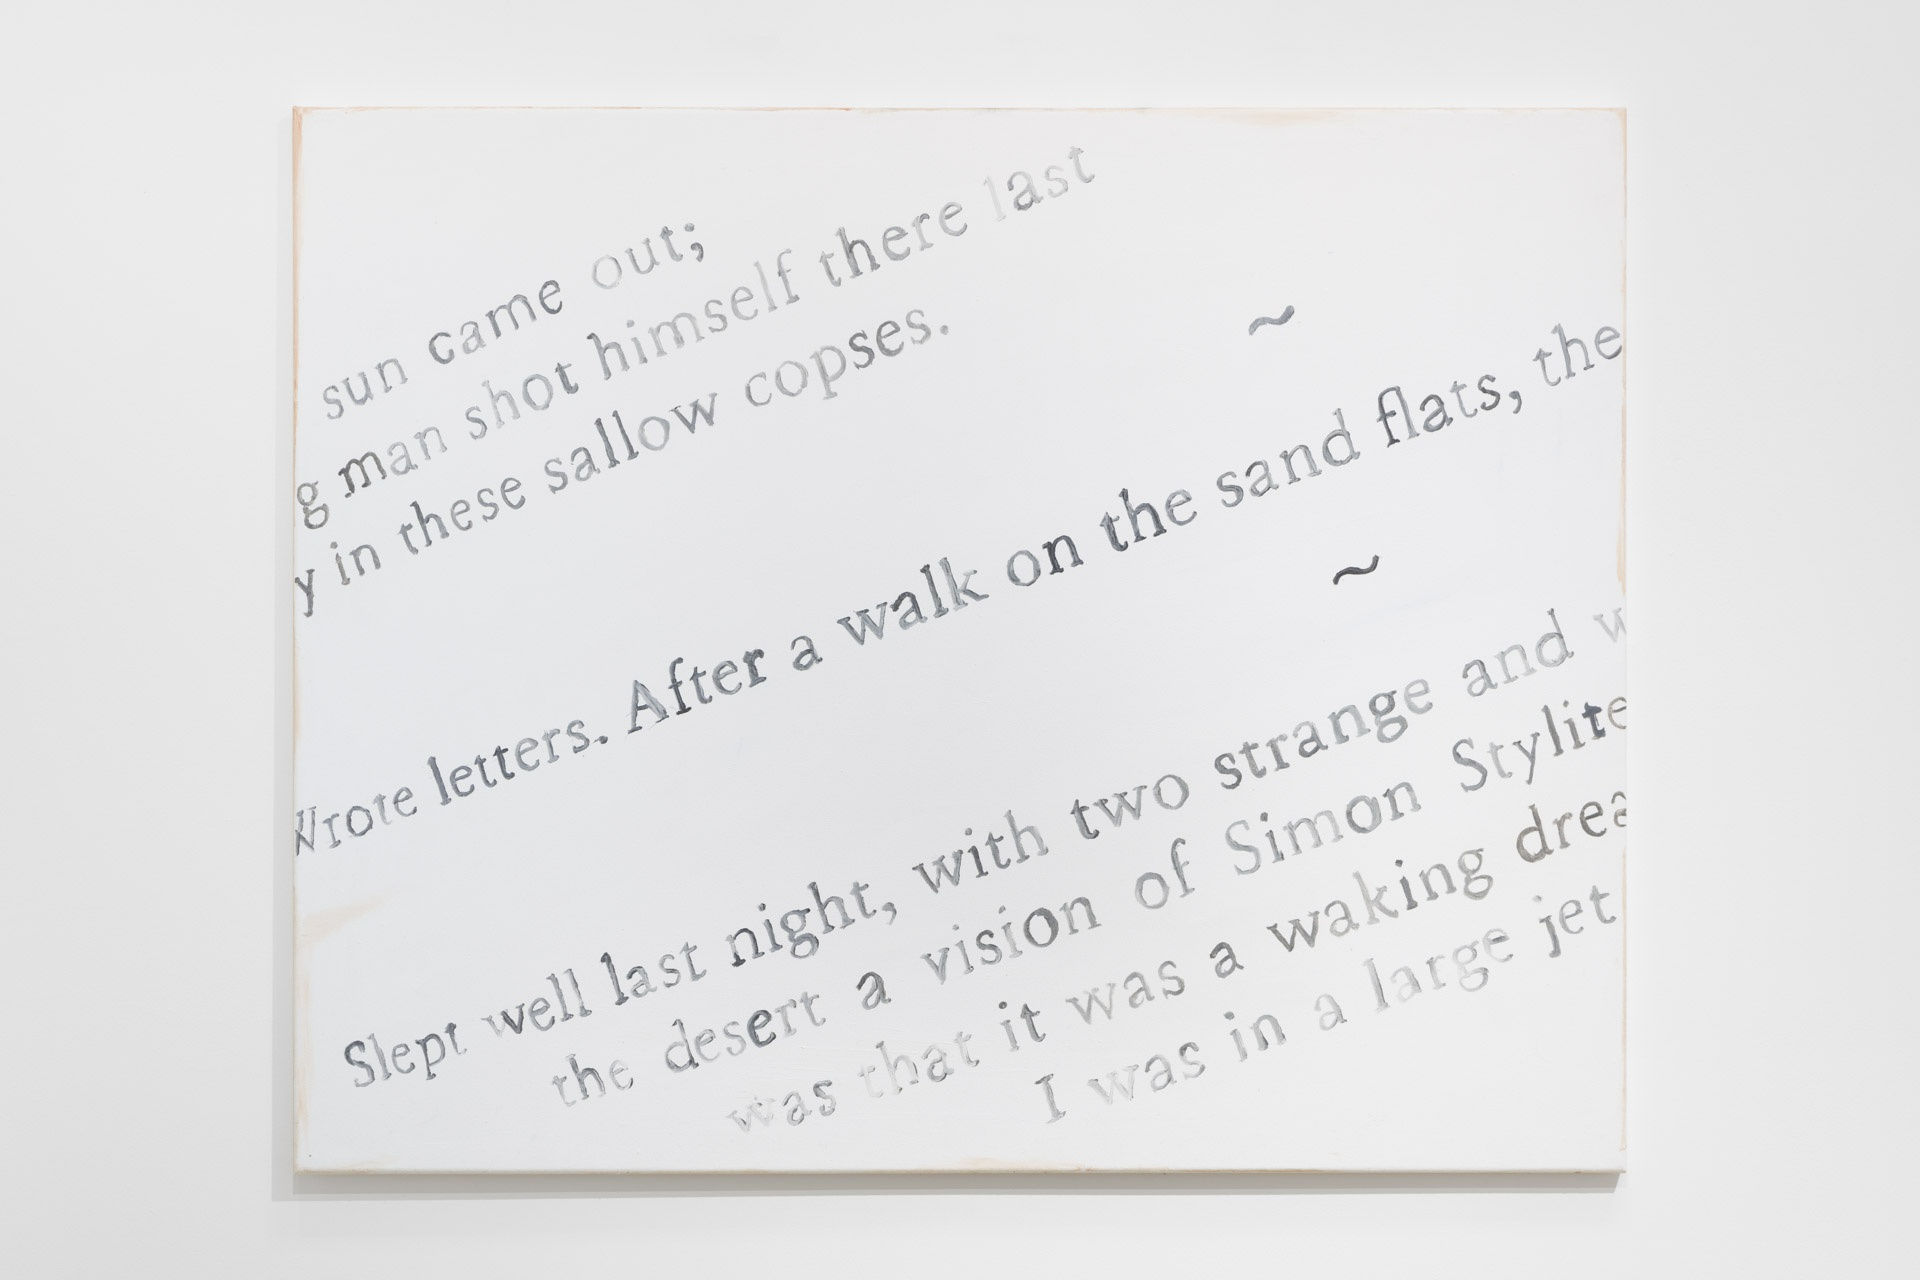 sun came out;
g man shot himself there last
y in these sallow copses.
~
Wrote letters. After a walk on the sand flats, the
~
Slept well last night, with two strange and w
the desert a vision of Simon Stylite
was that it was a waking drea
I was in a large jet